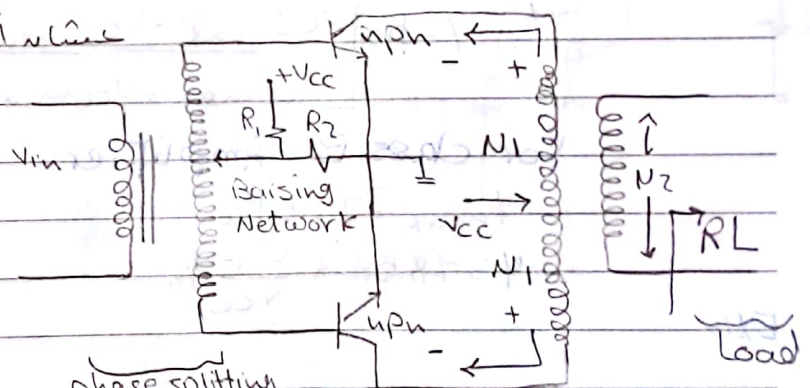 npn
- +
+Vcc
R1 R2
Vin
N1
N2
Baising
Network
Vcc
RL
N1
npn
+
-
Load
phase splitting